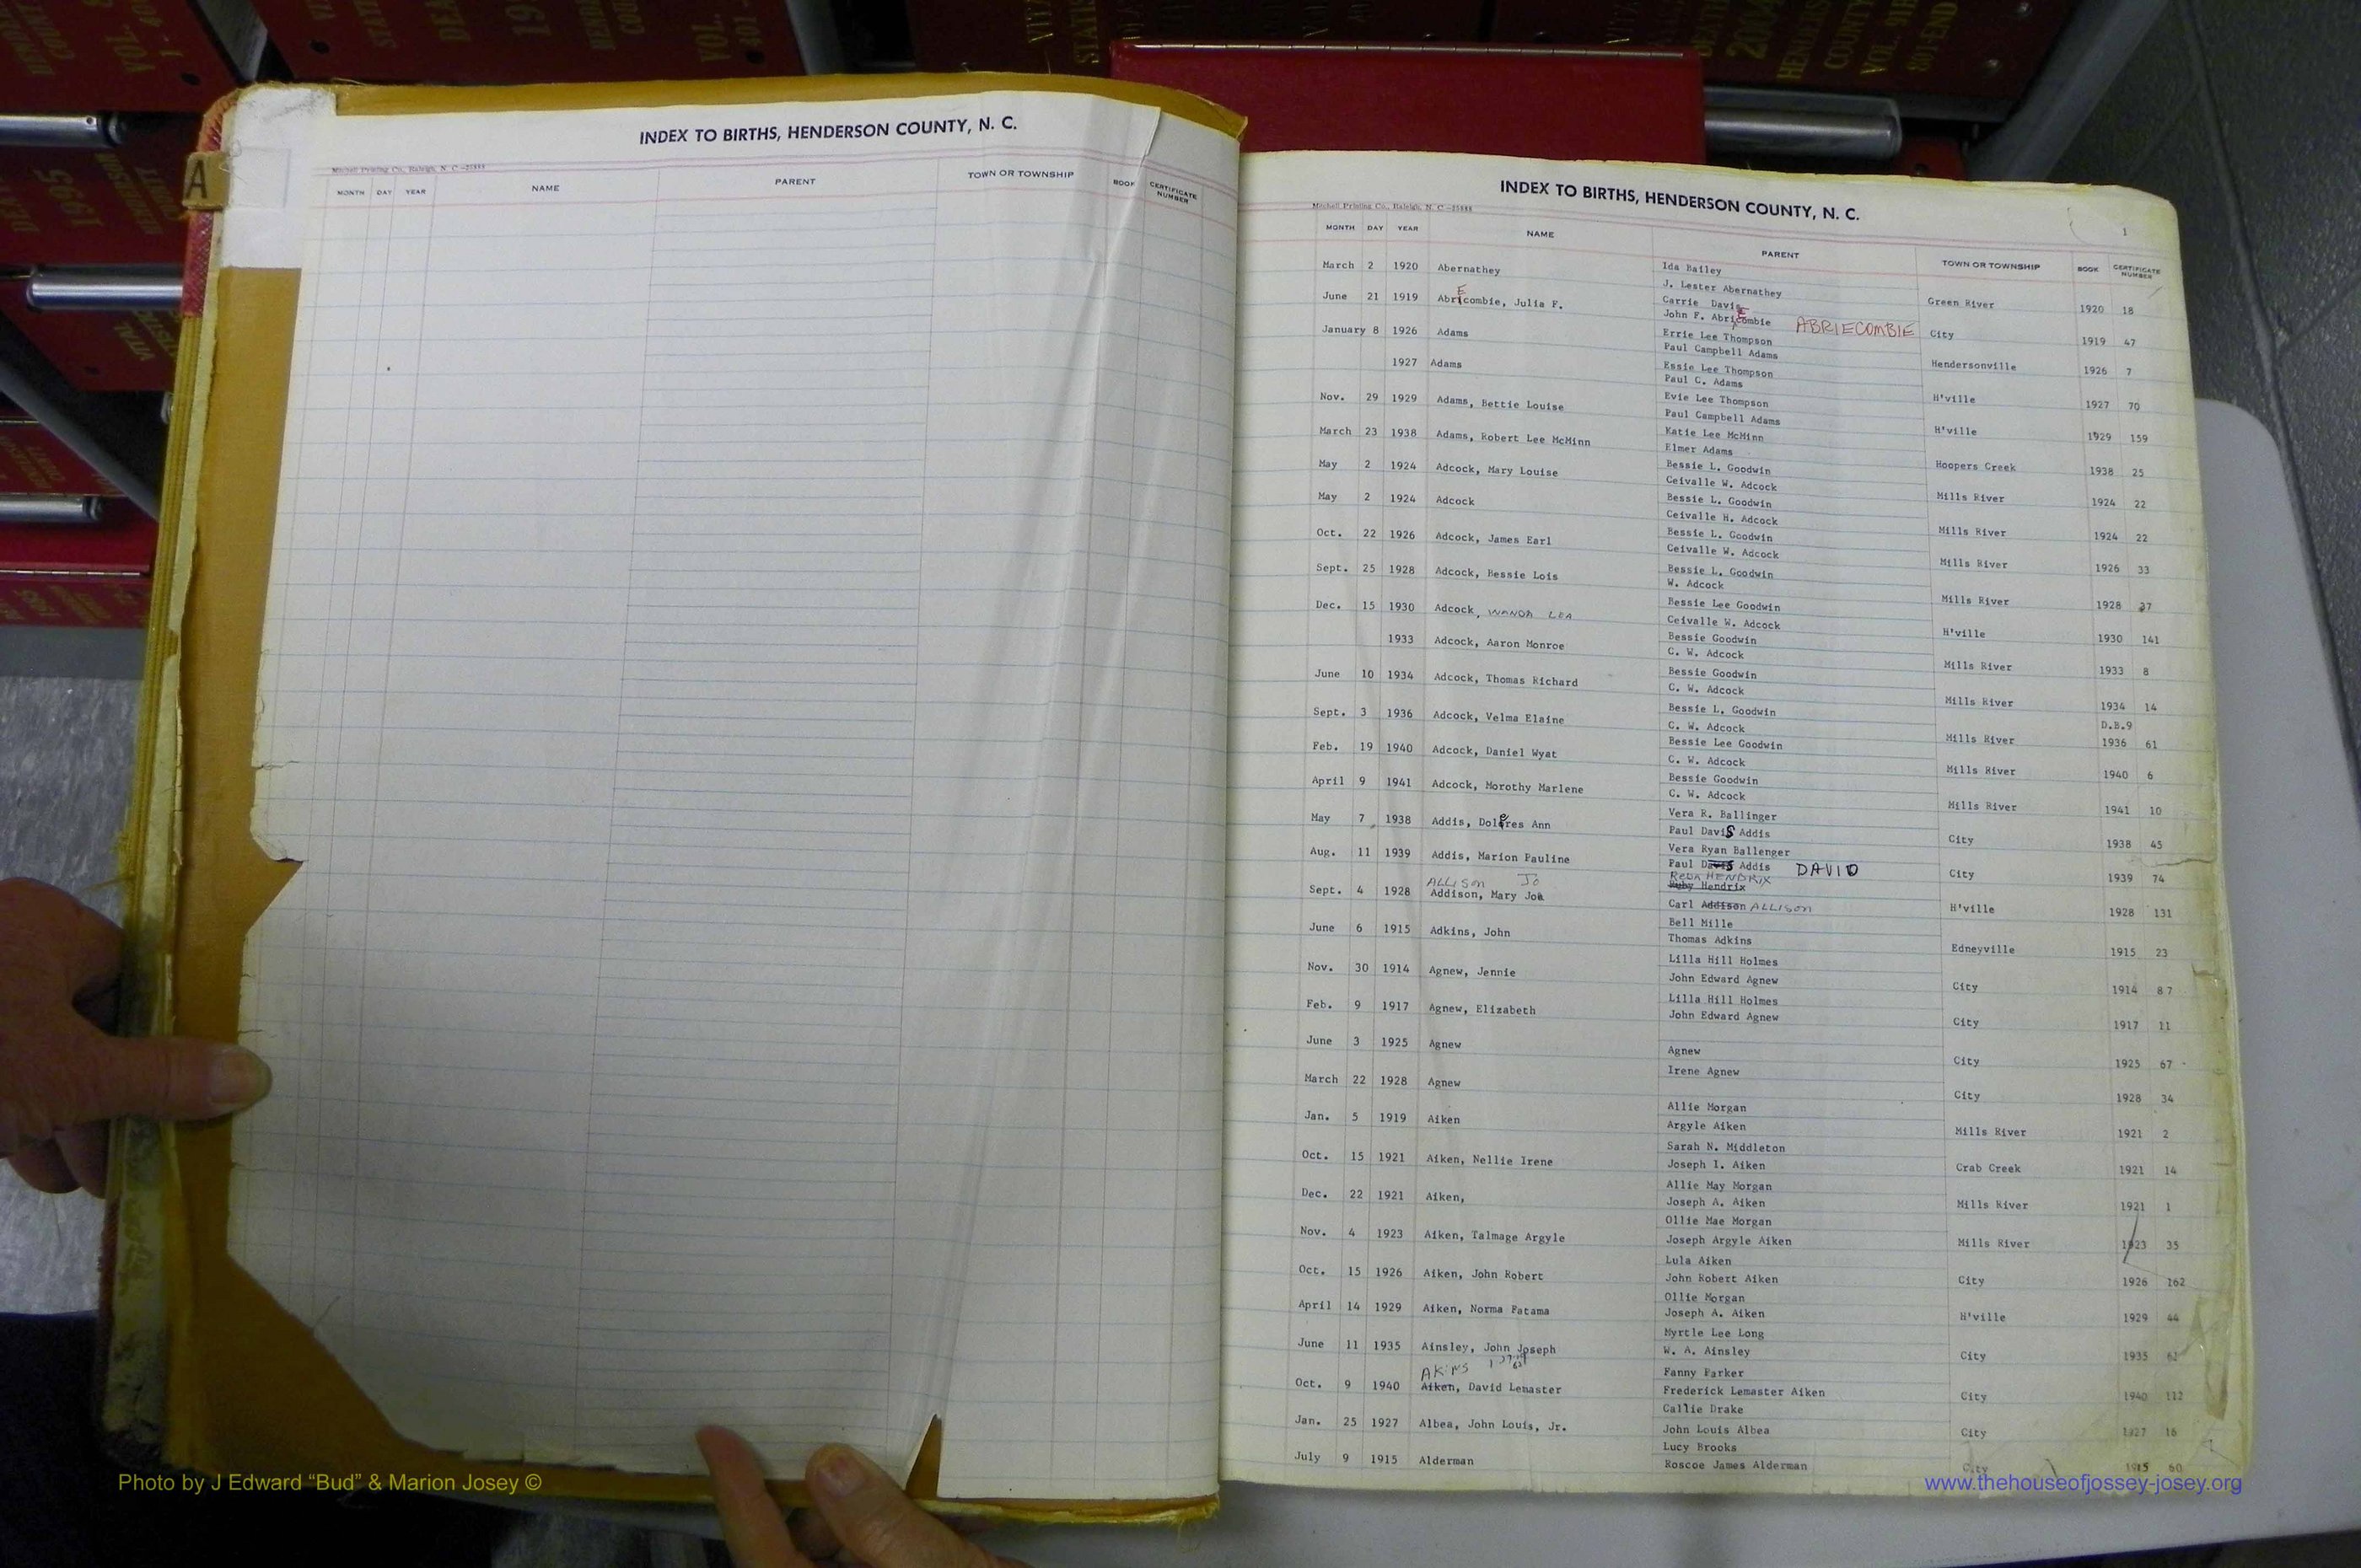 VOL. 4
1995
VITAL
2004
HENDERSON
COUNTY
VOL. 91B
801-END
A
INDEX TO BIRTHS, HENDERSON COUNTY, N. C.
Mitchell Printing Co., Raleigh, N. C.
MONTH DAY YEAR NAME PARENT TOWN OR TOWNSHIP BOOK CERTIFICATE NUMBER
INDEX TO BIRTHS, HENDERSON COUNTY, N. C.
1
Mitchell Printing Co., Raleigh, N. C.
MONTH DAY YEAR NAME PARENT TOWN OR TOWNSHIP BOOK CERTIFICATE NUMBER
March 2 1920 Abernathey Ida Bailey
J. Lester Abernathey Green River 1920 18
June 21 1919 Abricombie, Julia F. Carrie Davis
E
John F. Abricombie ABRIECOMBIE City 1919 47
January 8 1926 Adams Errie Lee Thompson
Paul Campbell Adams Hendersonville 1926 7
1927 Adams Essie Lee Thompson
Paul C. Adams H'ville 1927 70
Nov. 29 1929 Adams, Bettie Louise Evie Lee Thompson
Paul Campbell Adams H'ville 1929 159
March 23 1938 Adams, Robert Lee McMinn Katie Lee McMinn
Elmer Adams Hoopers Creek 1938 25
May 2 1924 Adcock, Mary Louise Bessie L. Goodwin
Ceivalle W. Adcock Mills River 1924 22
May 2 1924 Adcock Bessie L. Goodwin
Ceivalle H. Adcock Mills River 1924 22
Oct. 22 1926 Adcock, James Earl Bessie L. Goodwin
Ceivalle W. Adcock Mills River 1926 33
Sept. 25 1928 Adcock, Bessie Lois Bessie L. Goodwin
W. Adcock Mills River 1928 37
Dec. 15 1930 Adcock, WANDA LEA Bessie Lee Goodwin
Ceivalle W. Adcock H'ville 1930 141
1933 Adcock, Aaron Monroe Bessie Goodwin
C. W. Adcock Mills River 1933 8
June 10 1934 Adcock, Thomas Richard Bessie Goodwin
C. W. Adcock Mills River 1934 14
Sept. 3 1936 Adcock, Velma Elaine Bessie L. Goodwin D.B.9
C. W. Adcock Mills River 1936 61
Feb. 19 1940 Adcock, Daniel Wyat Bessie Lee Goodwin
C. W. Adcock Mills River 1940 6
April 9 1941 Adcock, Morothy Marlene Bessie Goodwin
C. W. Adcock Mills River 1941 10
May 7 1938 Addis, Doleres Ann Vera R. Ballinger
Paul Davis Addis City 1938 45
Aug. 11 1939 Addis, Marion Pauline Vera Ryan Ballenger
Paul Davis Addis DAVID City 1939 74
ALLISON JO HENDRIX
Sept. 4 1928 Addison, Mary Joe Ruby Hendrix
Carl Addison ALLISON H'ville 1928 131
June 6 1915 Adkins, John Bell Mille
Thomas Adkins Edneyville 1915 23
Nov. 30 1914 Agnew, Jennie Lilla Hill Holmes
John Edward Agnew City 1914 87
Feb. 9 1917 Agnew, Elizabeth Lilla Hill Holmes
John Edward Agnew City 1917 11
June 3 1925 Agnew
Agnew City 1925 67
March 22 1928 Agnew Irene Agnew
City 1928 34
Jan. 5 1919 Aiken Allie Morgan
Argyle Aiken Mills River 1921 2
Oct. 15 1921 Aiken, Nellie Irene Sarah N. Middleton
Joseph I. Aiken Crab Creek 1921 14
Dec. 22 1921 Aiken, Allie May Morgan
Joseph A. Aiken Mills River 1921 1
Nov. 4 1923 Aiken, Talmage Argyle Ollie Mae Morgan
Joseph Argyle Aiken Mills River 1923 35
Oct. 15 1926 Aiken, John Robert Lula Aiken
John Robert Aiken City 1926 162
April 14 1929 Aiken, Norma Fatama Ollie Morgan
Joseph A. Aiken H'ville 1929 44
June 11 1935 Ainsley, John Joseph Myrtle Lee Long
W. A. Ainsley City 1935
AKINS
Oct. 9 1940 Aiken, David Lemaster Fanny Parker
Frederick Lemaster Aiken City 1940 112
Jan. 25 1927 Albea, John Louis, Jr. Callie Drake
John Louis Albea City 1927 16
July 9 1915 Alderman Lucy Brooks
Roscoe James Alderman City 1915 60
Photo by J Edward “Bud” & Marion Josey ©
www.thehouseofjossey-josey.org